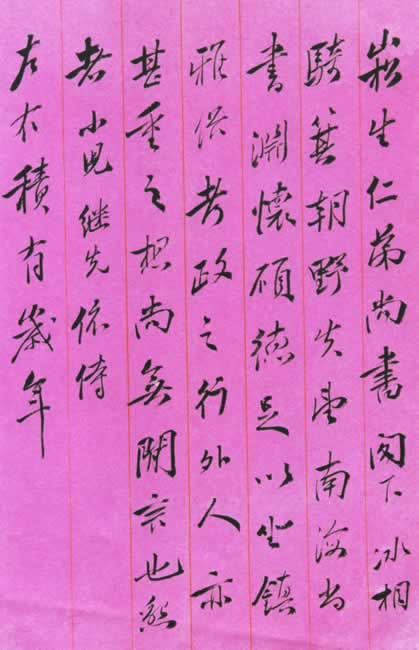 崧生仁弟尚書閣下冰相
騎箕朝野失望南海尚
書淵懷碩德足以坐鎮
雅俗考政之行外人亦
甚重之想尚無閒言也
者小兒继先依侍
左右積有歲年